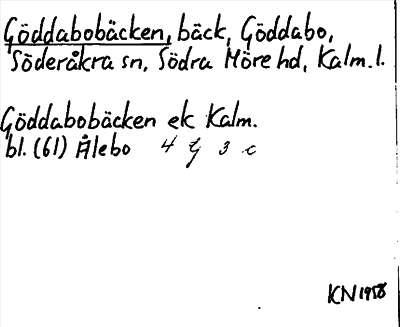 Göddabobäcken, bäck, Göddabo,
Söderåkra sn, Södra Möre hd, Kalm. l.
Göddabobäcken ek Kalm.
bl. (61) Ålebo 4 G 3 c
KN 1958